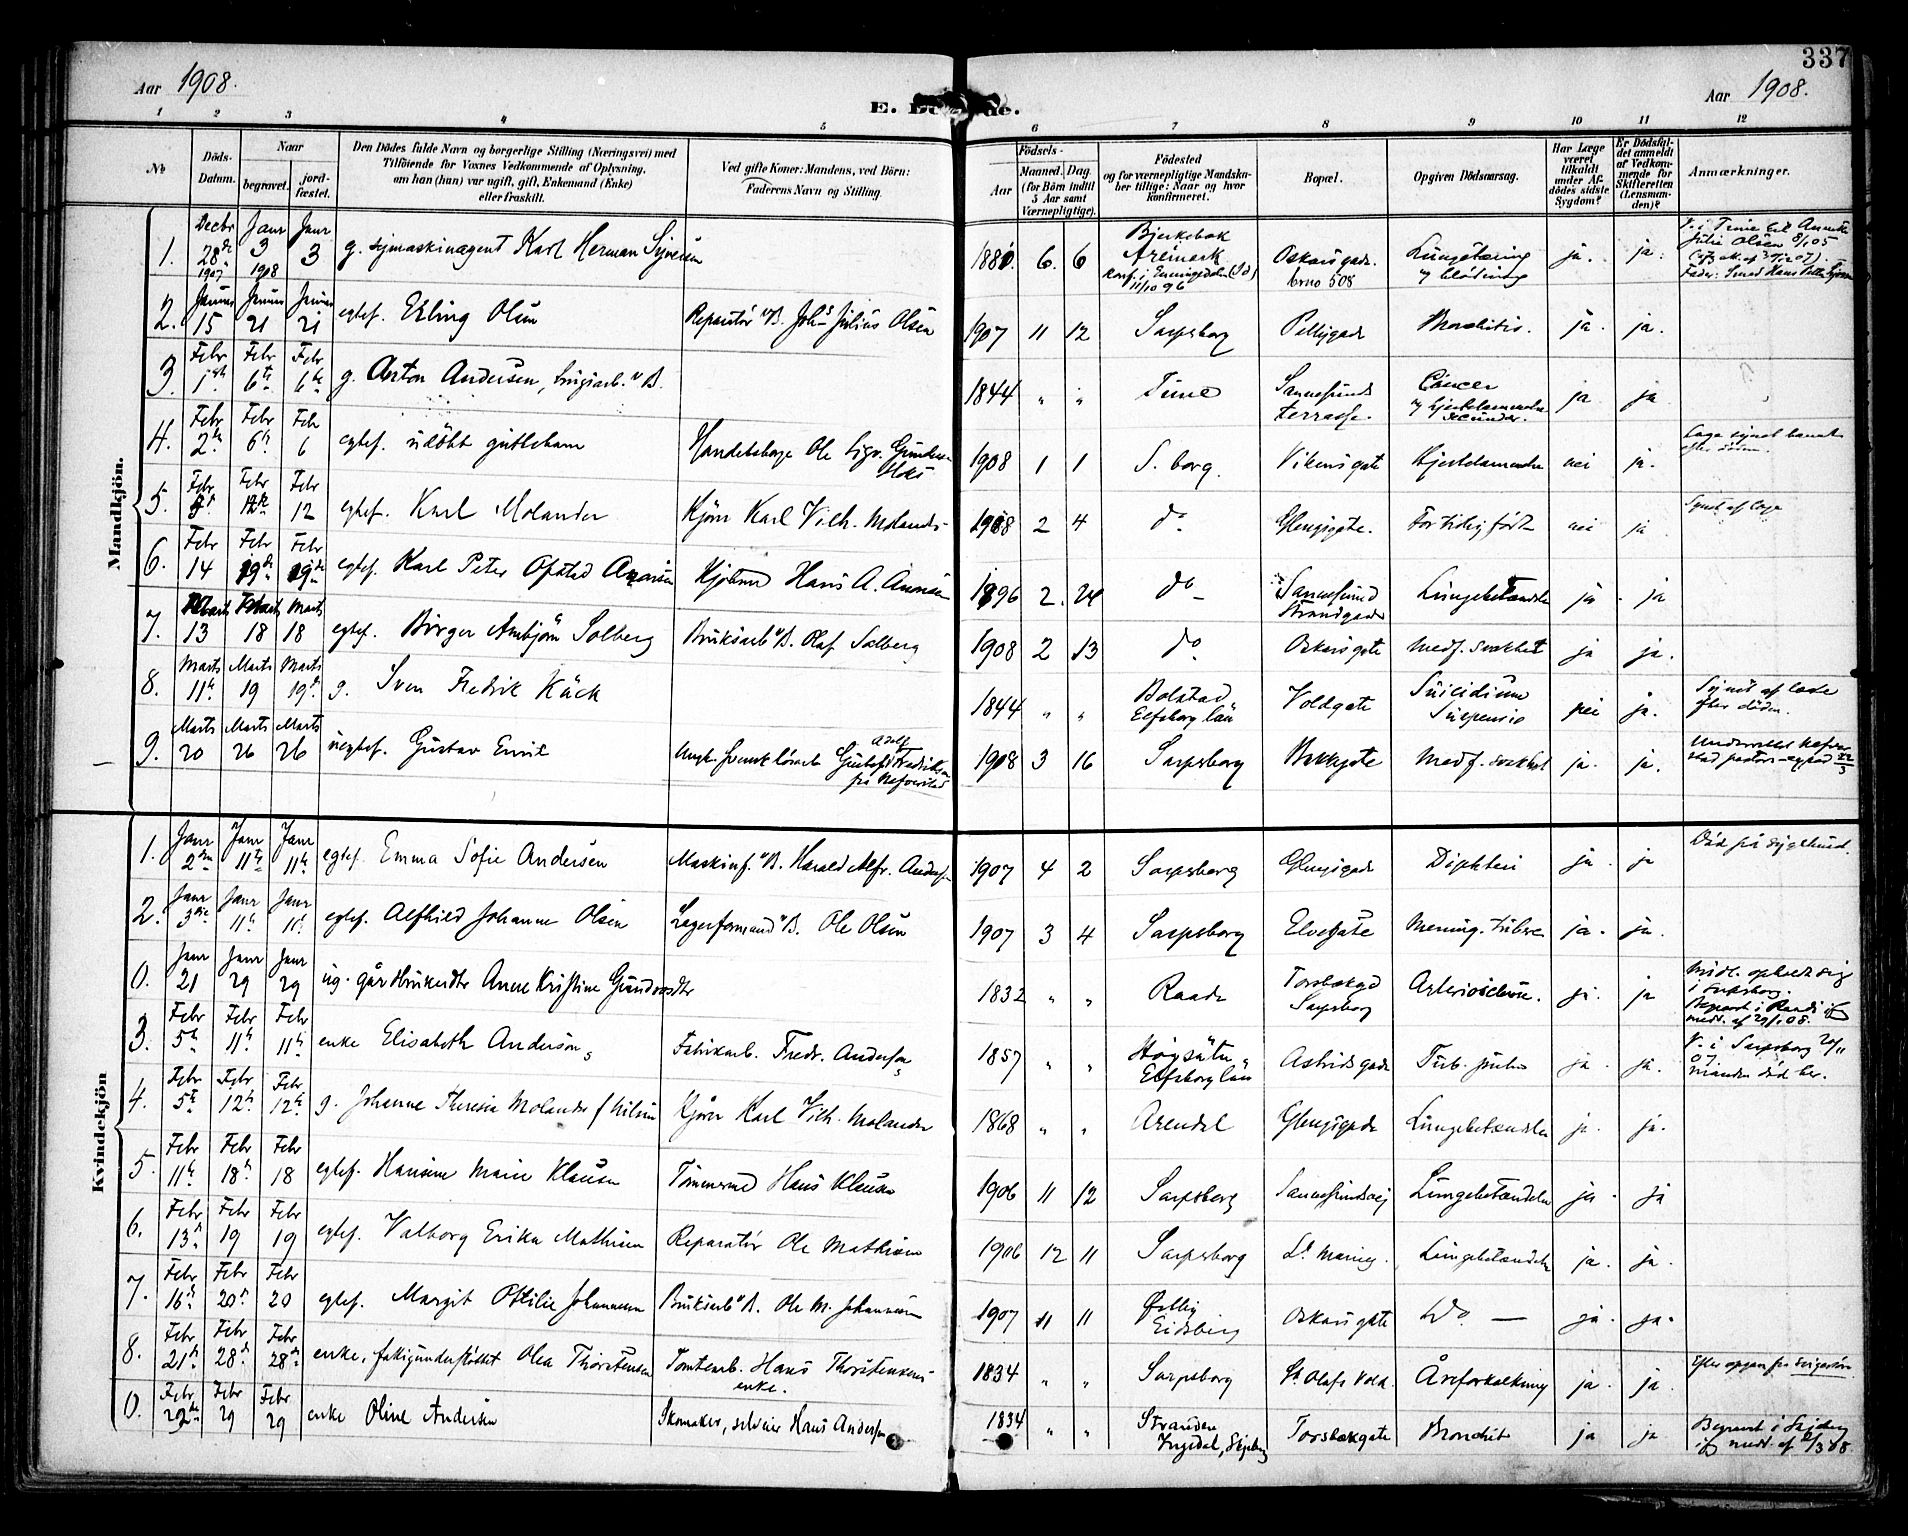 337
Aar 1908.
E. De
de.
Aar 1908.
1 2 3 4 5 6 7 8 9 10 11 12
No
Döds-Datum.
Naar
begravet. jord-fæstet.
Den Dödes fulde Navn og borgerlige Stilling (Næringsvei) med
Tilföiende for Voxnes Vedkommende af Oplysning,
om han (hun) var ugift, gift, Enkemand (Enke)
eller fraskilt.
Ved gifte Koner: Mandens, ved Börn:
Faderens Navn og Stilling.
Födsels-
Aar Maaned. Dag
(for Börn indtil 5 Aar samt Værnepligtige).
Födested
og for værnepligtige Mandska-
ber tillige: Naar og hvor
konfirmeret.
Bopæl.
Opgiven Dödsaarsag.
Har Læge været tilkaldt under Af-dödes sidste Sygdom?
Er Dödsfal-det anmeldt af Vedkom-mende for Skifteretten (Lensman-den)?
Anmærkninger.
Mandkjön.
1. Decbr 28de 1907 Janr 3 1908 Janr 3 g. symaskinagent Karl Herman Syversen 1880. 6. 6 Bjerkebak Aremark konf. i Enningdalen (Id) 11/10 96 Oskarsgade. brno 508 Lungetæring og blödning ja. ja.
2. Januar 15 Januar 21 Januar 21 egtef. Erling Olsen Reparatör v. B. Johs Julius Olsen 1907 11 12 Sarpsborg Pellygade ja. ja.
3. Febr 1ste Febr 6te Febr 6te g. Anton Andersen, brugsarb. v. B. 1844 " " Tune Sannesunds terrasse. Cancer og hjertelammelse secundær. ja ja
4. Febr 2den Febr 6te Febr 6 egtef. udöbt guttebarn Ole Sigv. Gundersen 1908 1 1 S. borg. Vikensgate Hjertelammelse nei ja.
5. Febr Febr 12te Febr 12 egtef. Karl Molander Kjörer Karl Vilh. Molander 1908 2 4 do. Glengsgate. For tidlig födt nei ja Synet af læge
6. Febr 14 Febr 19de Febr 19de egtef. Karl Peter Opstad Aronsen Hans A. Aronsen 1896 2. 24 do Sannesund Strandgade Lungebetændelse ja. ja
7. Marts 13 Marts 18 Marts 18 egtef. Birger Arnbjörn Solberg Bruksarb. v. B. Olaf Solberg 1908 2 13 do. Oskarsgate medf. svakhet ja ja.
8. Marts 11te Marts 19 Marts 19de g. Sven Fredrik Käck 1844 " " Bolstad Elfsborg län Voldgate Suicidium Suspensio nei ja. Synet af læge efter döden.
9. Marts 20 Marts 26 Marts 26 uegtef. Gustav Emil Ungk. svensk Gustaf Adolf Fredriksen fra Næfverstad 1908 3 16 Sarpsborg Bakkegate Medf. svakhet ja. ja. Underrettet Næfver-stad pastors-exped 22/3
Kvindekjön
1. Janr 2den Janr 11te Janr 11te egtef. Emma Sofie Andersen Maskinf. v. B. Harald Alfr. Andersen 1907 4 2 Sarpsborg Glengsgade Difteri ja. ja Död på sygehuset.
2. Janr 3die Janr 11te Janr 11te egtef. Alfhild Johanne Olsen Lagerformand v. B. Ole Olsen 1907 3 4 Sarpsborg Elvegate Mening. tuberc ja. ja.
0. Janr 21 Janr 29 Janr 29 ug. gårdbrukerdtr Anne Kristine Gundersdtr 1832 " " Raade Torsbækgd Sarpsborg Arteriosclerose. ja. ja Midl. opholdt sig i Sarpsborg. Begravet i Raade ifg medd. af 29/1 08.
3. Febr 5te Febr 11te Febr 11te enke Elisabeth Anderson Fabrikarb. Fredr. Anderson 1857 " " Högsäter Elfsborg län Astridsgade Tub. pulm ja ja. V. i Sarpsborg 20/11 07. manden död her.
4. Febr 5te Febr 12te Febr 12te g. Johanne Theresia Molander f. Nilsen Kjörer Karl Vilh. Molander 1868 " " Arendal Glengsgade Lungebetændelse ja. ja.
5. Febr 11te Febr 18de Febr 18 egtef. Hansine Marie Klausen Tömmermd Hans Klausen 1906 11 12 Sarpsborg Sannesundsvej Lungebetændelse ja. ja
6. Febr 13de Febr 19 Febr 19 egtef. Valborg Erika Mathisen Reparatör Ole Mathisen 1906 12 11 Sarpsborg St. Marieg. Lungebetændelse ja. ja.
7. Febr 16de Febr 20de Febr 20 egtef. Margit Ottilie Johannesen Bruksarb. v. B. Ole M. Johannesen 1907 11 11 Østby Eidsberg Oskarsgate Do. — ja. ja.
8. Febr 21de Febr 28de Febr 28de enke, fattigunderstöttet Olea Thorstensen Tomtearb. Hans Thorstensens enke. 1834 " " Sarpsborg St. Olafs Vold. Åreforkalkning ja. ja. Efter opgave fra
0. Febr 23de Febr 29 Febr 29 enke Oline Andersen Skomaker, Hans Andersen 1834 " " Stranden Ingedal, Skjeberg Torsbækgate Bronchit ja ja Begravet i Skjeberg ifg medd. af /3 08